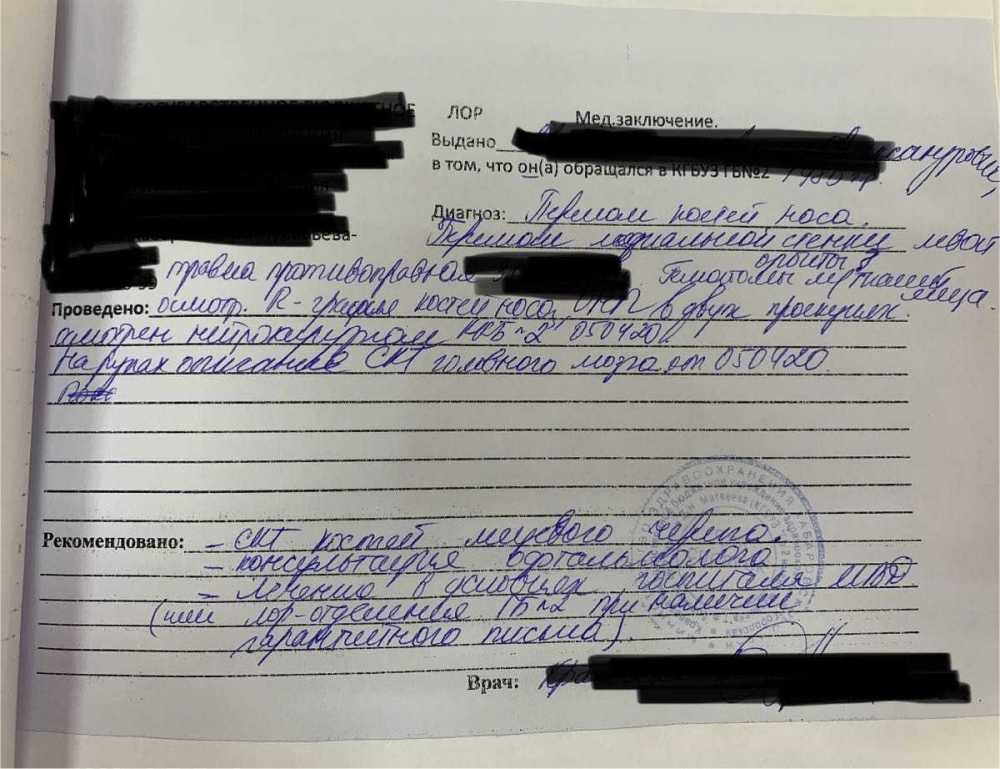 ЛОР
Мед.заключение.
Выдано
в том, что он(а) обращался в КГБУЗ ГБ№2
Диагноз: Перелом костей носа.
Перелом медиальной стенки левой
орбиты.
травма противоправная Гематомы мягких тканей лица.
Проведено: осмотр. R-графия костей носа, ОНП в двух проекциях.
осмотрен нейрохирургом ККБ-2 050420.
На руках описание СКТ головного мозга от 050420.
Рекомендовано: - СКТ костей лицевого черепа.
- консультация офтальмолога
- лечение в условиях госпиталя МВД
(или лор-отделения ГБ№2 при наличии
гарантийного письма).
Врач: